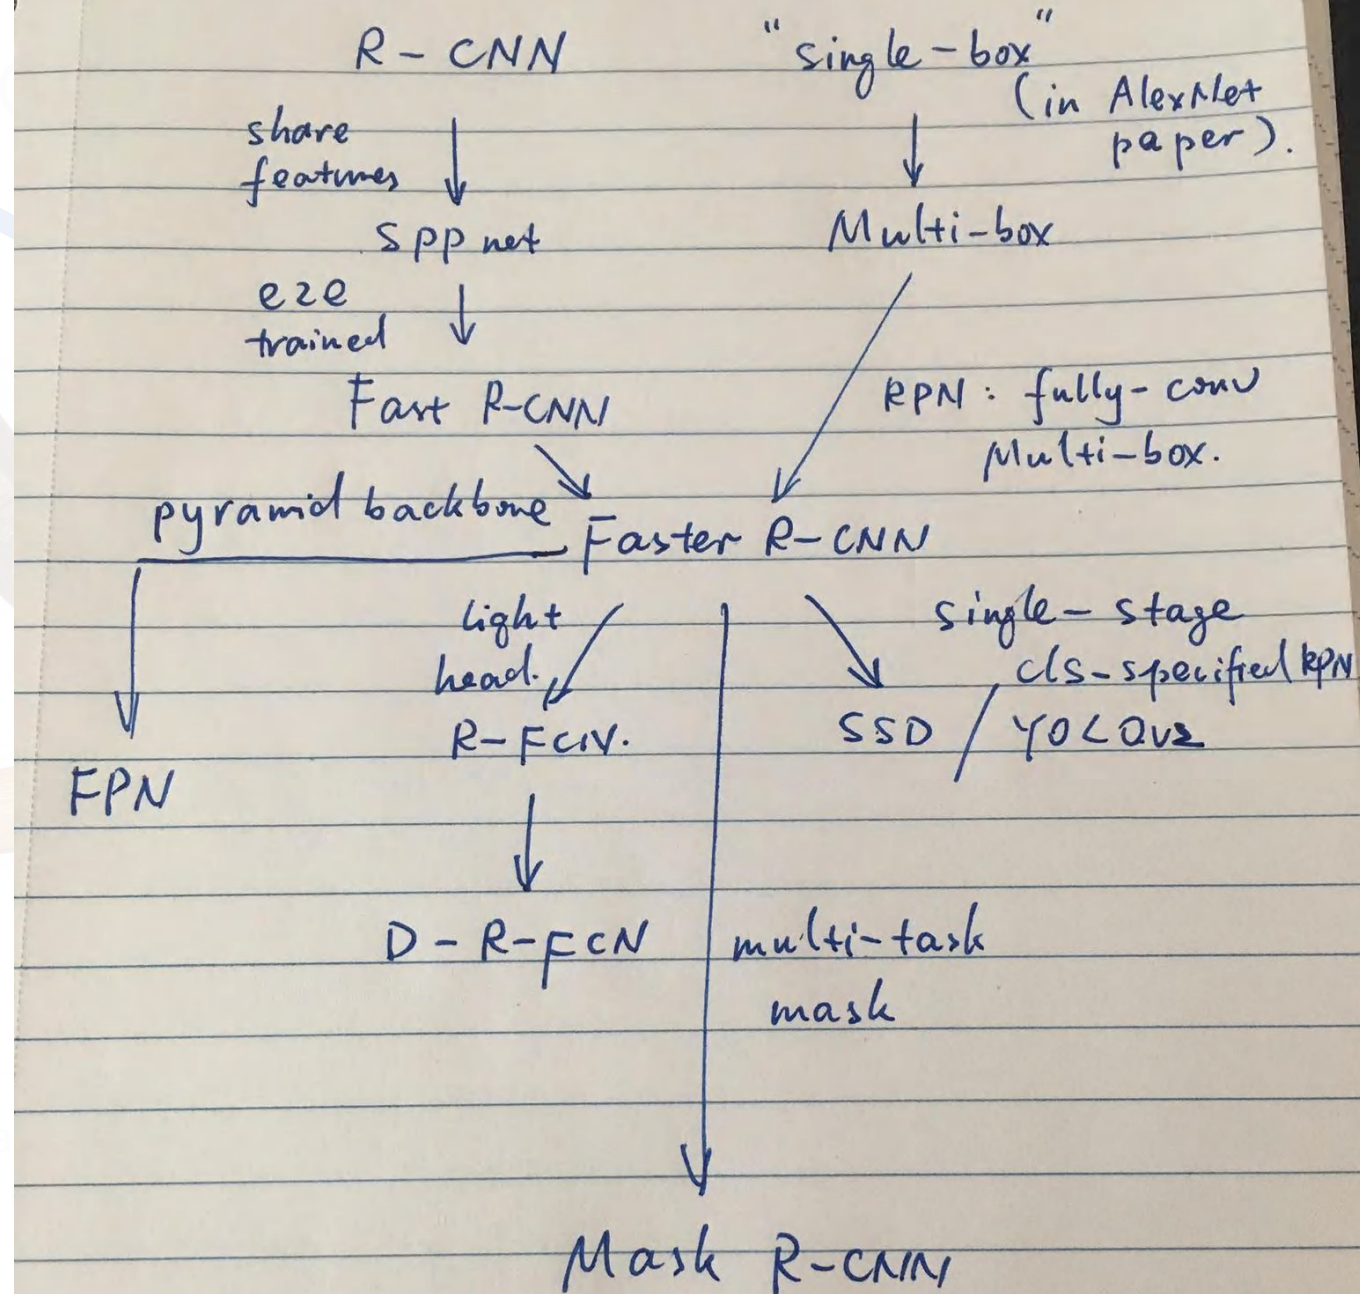 R - CNN
"single-box"
(in AlexNet
paper).
share
features
SPP net
Multi-box
e2e
trained
Fast R-CNN
RPN: fully-conv
Multi-box.
pyramid backbone
Faster R-CNN
light
head.
single-stage
cls-specified RPN
R-FCN.
SSD / YOLOv2
FPN
D-R-FCN
multi-task
mask
Mask R-CNN